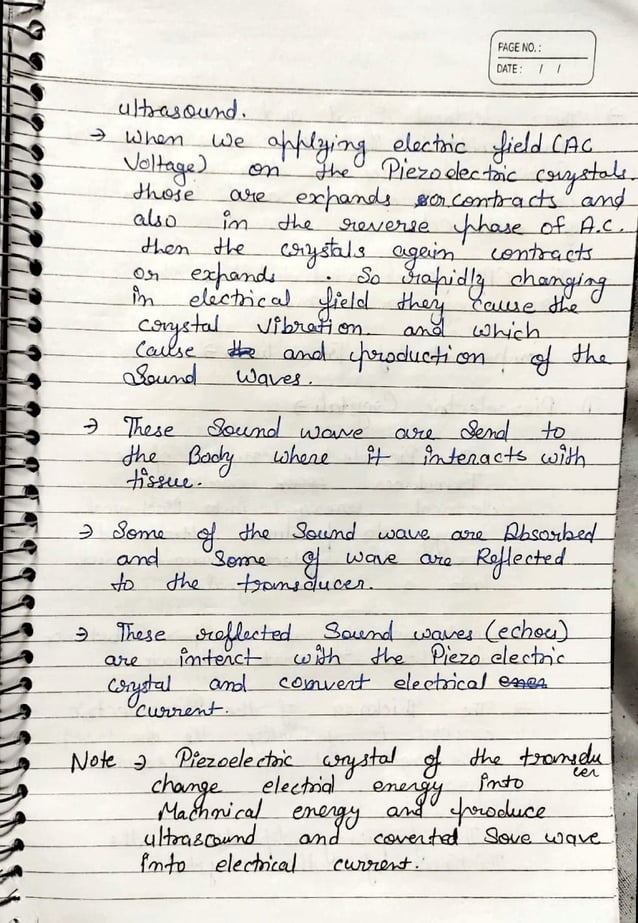 PAGE NO. :
DATE : / /
ultrasound.
→ When we applying electric field (AC
Voltage) on the Piezoelectric crystals.
those are expands or contracts and
also in the reverse phase of A.C.
then the crystals agein contracts
or expands . So rapidly changing
in electrical field they cause the
crystal vibration. and which
Cause the and production of the
Sound waves.
→ These Sound wave are Send to
the Body where it interacts with
tissue.
→ Some of the Sound wave are Absorbed
and Some of wave are Reflected
to the transducer.
→ These reflected Sound waves (echos)
are interct with the Piezo electric
crystal and convert electrical ener
current.
Note → Piezoelectric crystal of the transdu
cer
change electrial energy into
Machnical energy and produce
ultrasound and coverted Sove wave
into electrical current.